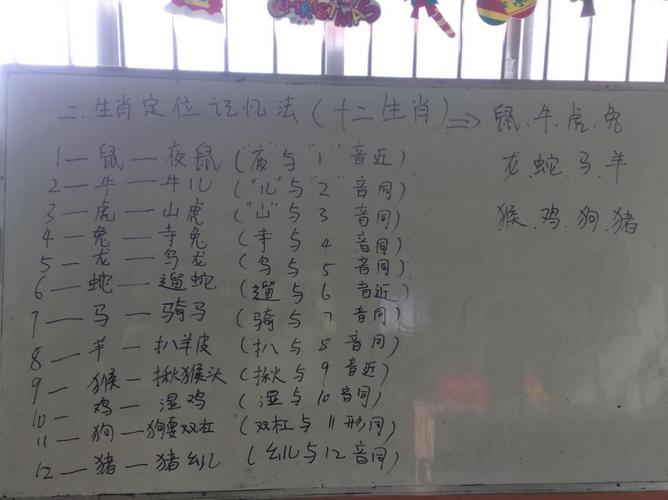 CHRISTMAS
二.生肖定位记忆法(十二生肖)⇒ 鼠.牛.虎.兔.
龙.蛇.马.羊
猴.鸡.狗.猪
1—鼠—夜鼠("夜"与"1"音近)
2—牛—牛儿("儿"与"2"音同)
3—虎—山虎("山"与3音同)
4—兔—寺兔(寺与4音同)
5—龙—乌龙(乌与5音同)
6—蛇—遛蛇(遛与6音近)
7—马—骑马(骑与7音同)
8—羊—扒羊皮(扒与8音同)
9—猴—揪猴头(揪与9音近)
10—鸡—湿鸡(湿与10音同)
11—狗—狗耍双杠(双杠与11形同)
12—猪—猪幼儿(幼儿与12音同)